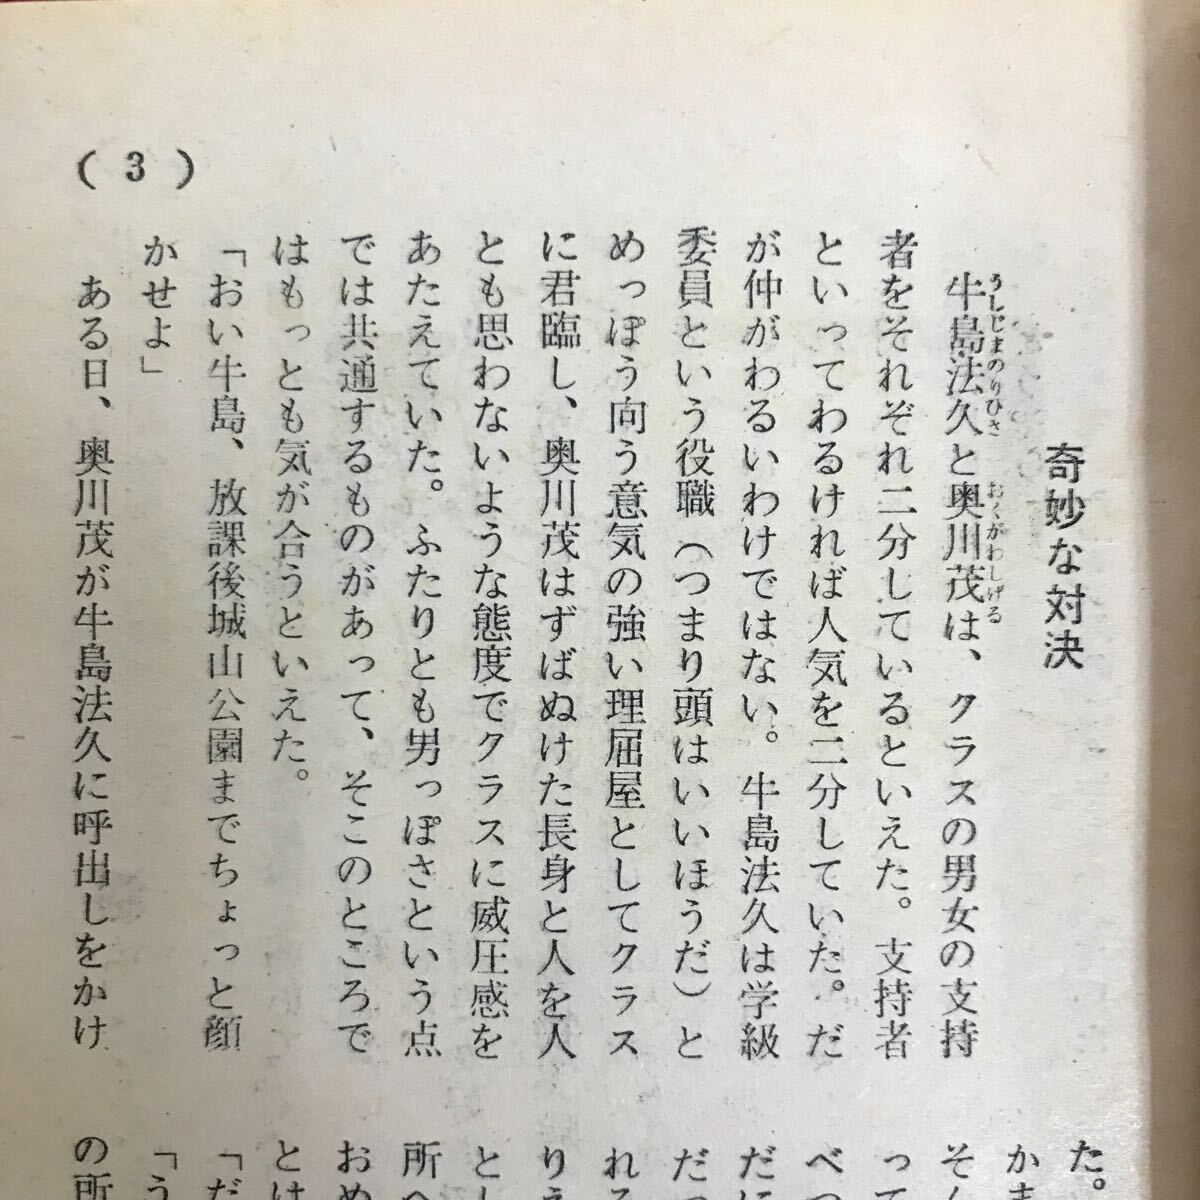 奇妙な対決
牛島法久と奥川茂は、クラスの男女の支持
うしじまのりひさ
おくがわしげる
者をそれぞれ二分しているといえた。支持者
といってわるければ人気を二分していた。だ
が仲がわるいわけではない。牛島法久は学級
委員という役職（つまり頭はいいほうだ）と
めっぽう向う意気の強い理屈屋としてクラス
に君臨し、奥川茂はずばぬけた長身と人を人
とも思わないような態度でクラスに威圧感を
あたえていた。ふたりとも男っぽさという点
では共通するものがあって、そこのところで
はもっとも気が合うといえた。
「おい牛島、放課後城山公園までちょっと顔
かせよ」
ある日、奥川茂が牛島法久に呼出しをかけ
(3)
た。
かま
そん
って
べつ
だに
だっ
れる
りえ
とし
所へ
おめ
とは
「だ
「う
の所